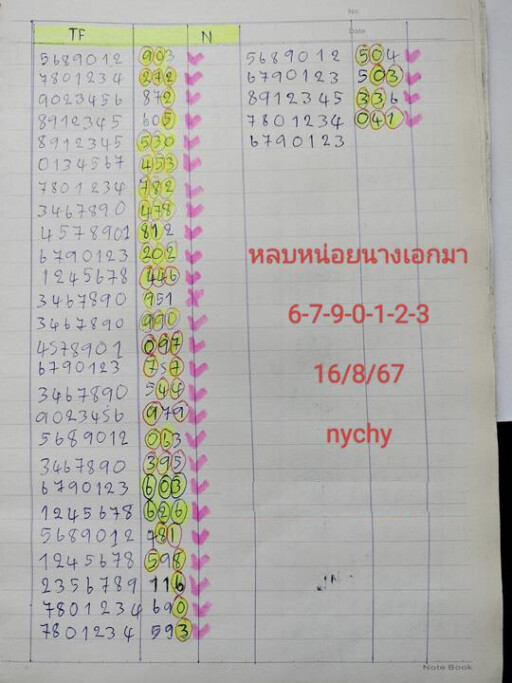 No.
Date
TF N
5689012 903
7801234 272
9023456 872
8912345 605
8912345 530
0134567 453
7801234 782
3467890 478
4578901 812
6790123 202
1245678 446
3467890 951
3467890 990
4578901 097
6790123 757
3467890 544
9023456 979
5689012 063
3467890 395
6790123 603
1245678 626
5689012 781
1245678 598
2356789 116
7801234 690
7801234 593
5689012 504
6790123 503
8912345 336
7801234 041
6790123
หลบหน่อยนางเอกมา
6-7-9-0-1-2-3
16/8/67
nychy
Note Book